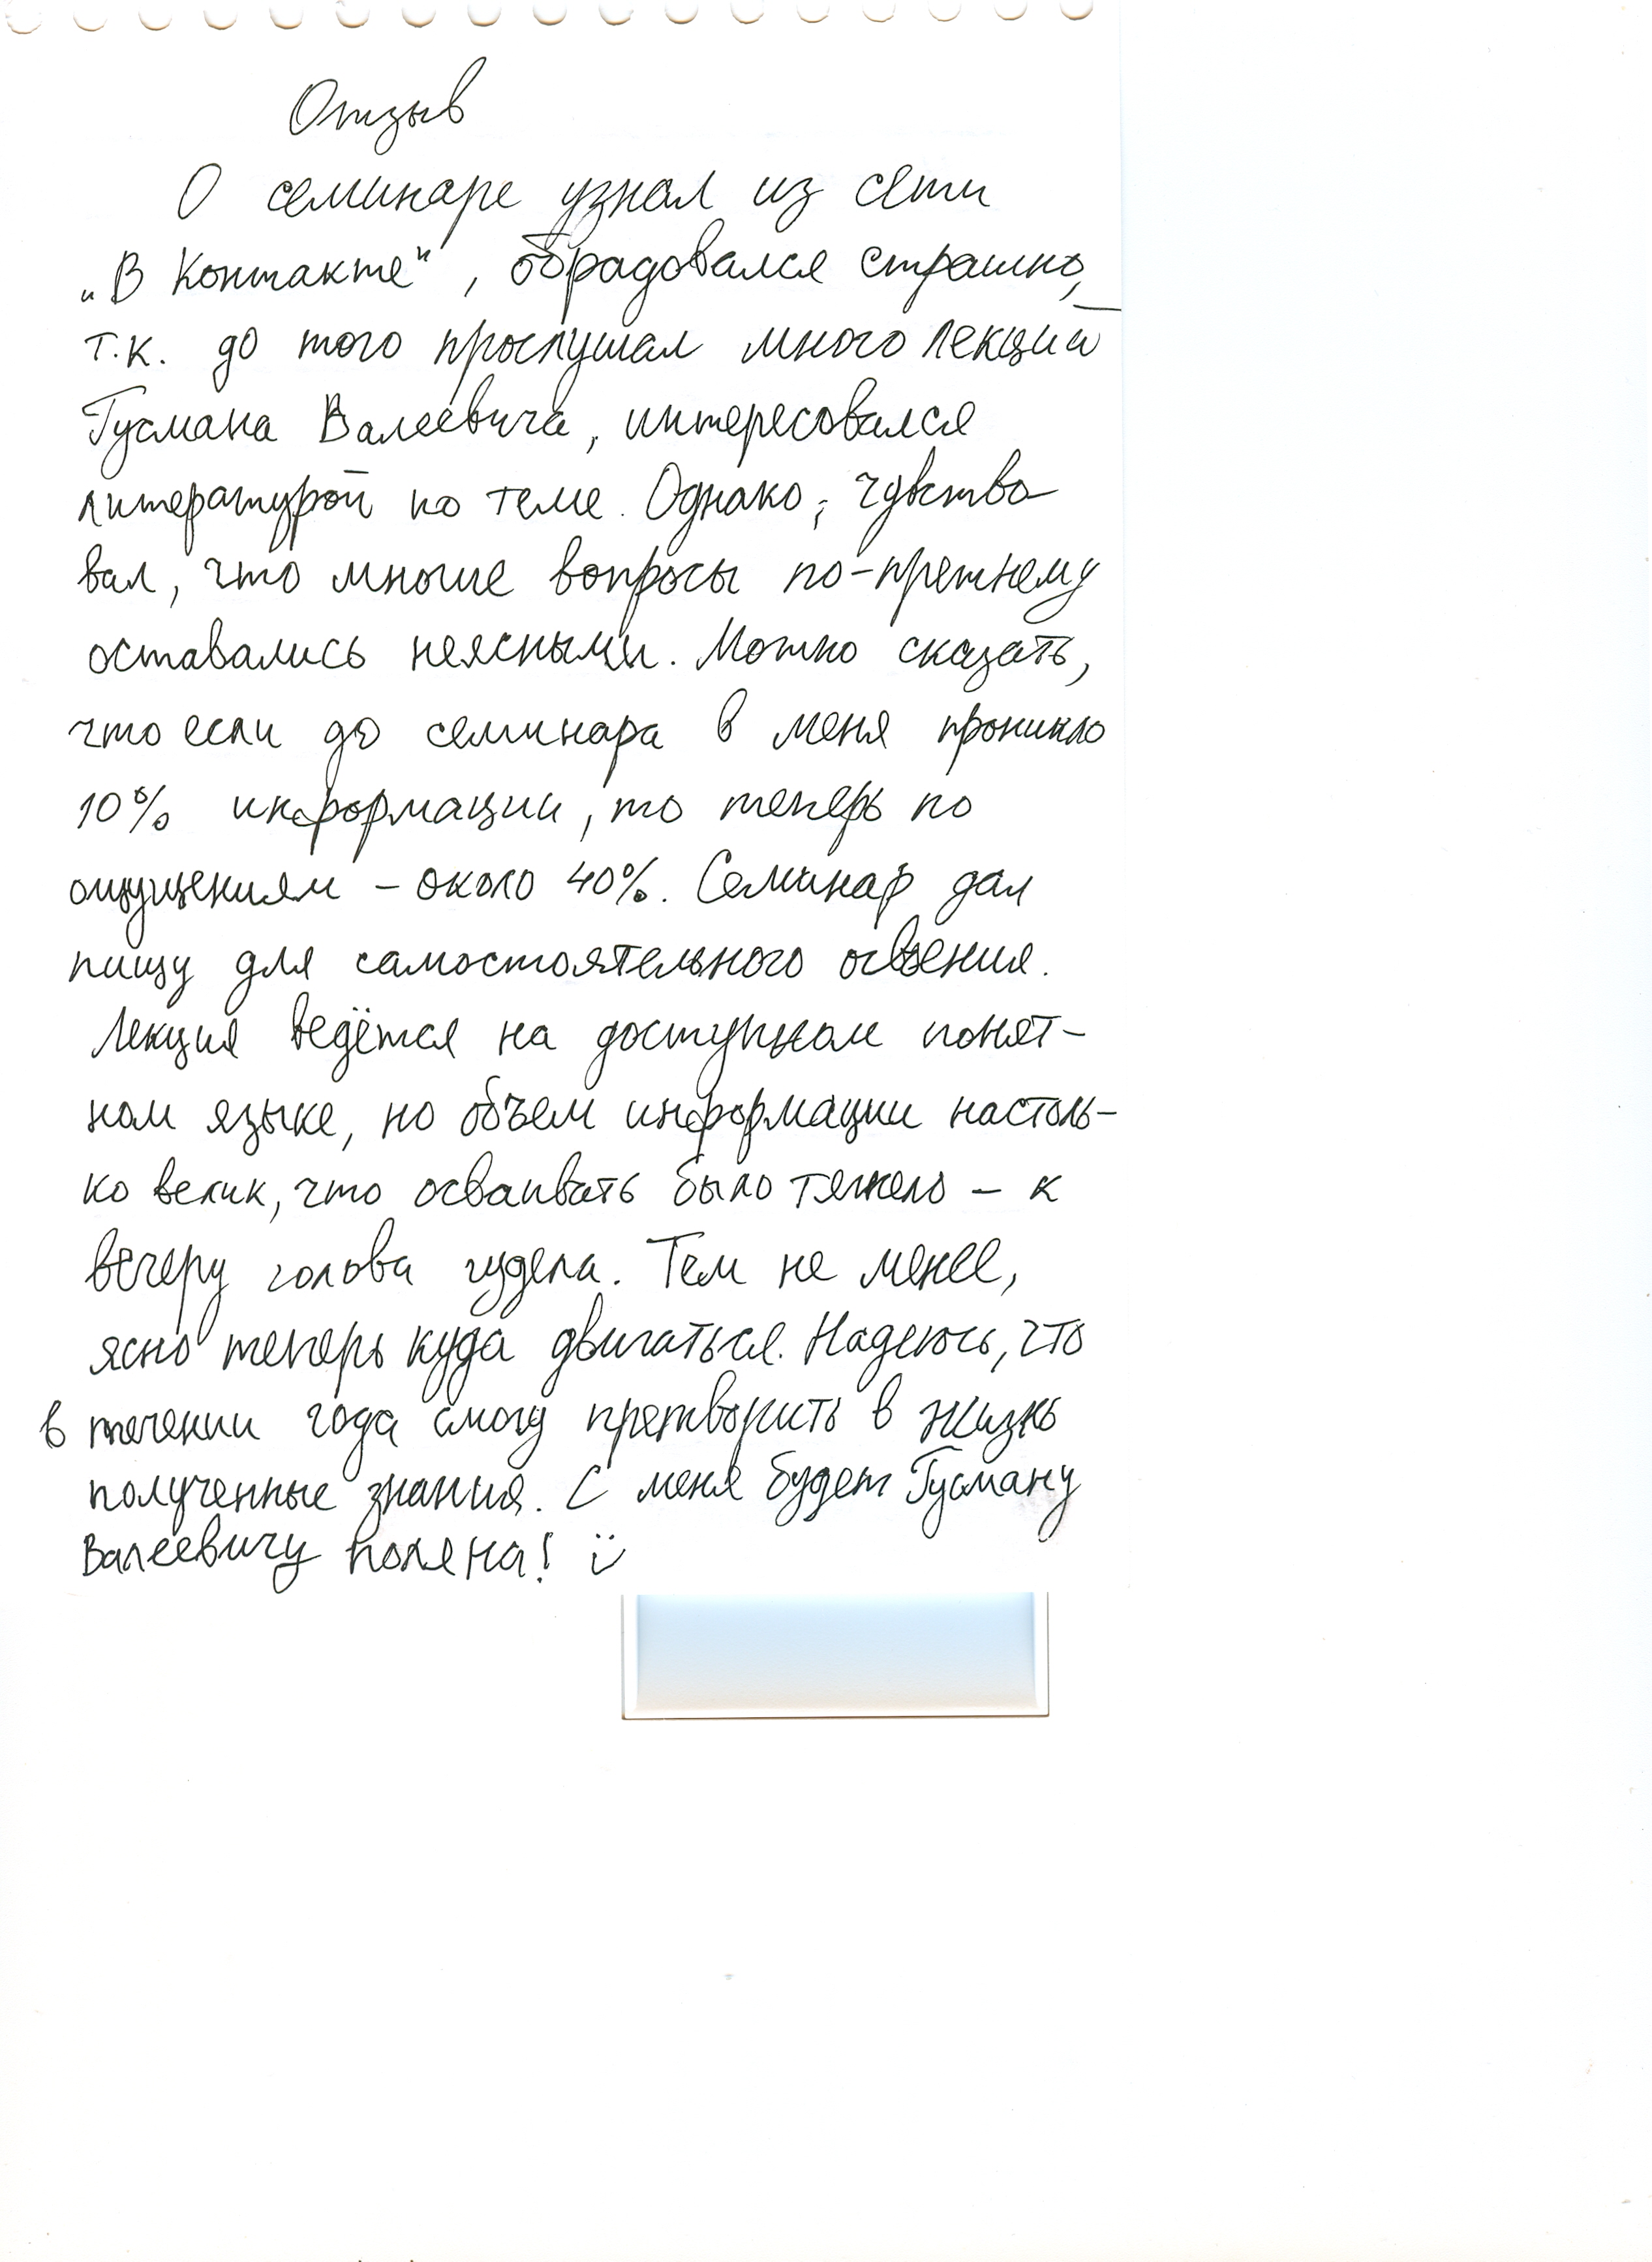 Отзыв
О семинаре узнал из сети
„В Контакте“, обрадовался страшно,
т.к. до того прослушал много лекций
Гусмана Валеевича, интересовался
литературой по теме. Однако, чувство-
вал, что многие вопросы по-прежнему
оставались неясными. Можно сказать,
что если до семинара в меня проникло
10% информации, то теперь по
ощущениям – около 40%. Семинар дал
пищу для самостоятельного освоения.
Лекция ведётся на доступном понят-
ном языке, но объем информации настоль-
ко велик, что осваивать было тяжело – к
вечеру голова гудела. Тем не менее,
ясно теперь куда двигаться. Надеюсь, что
в течении года смогу претворить в жизнь
полученные знания. С меня будет Гусману
Валеевичу поляна! ü